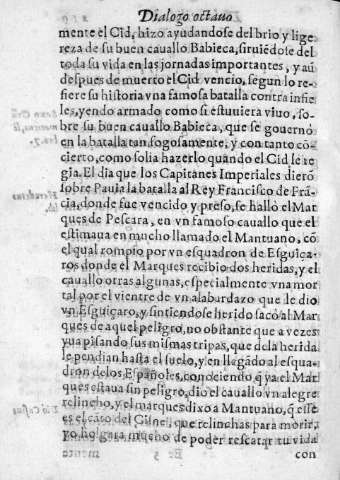 Dialogo octauo
mente el Cid, hizo ayudandose del brio y lige
reza de su buen cauallo Babieca, siruiẽdose del
toda su vida en las jornadas importantes, y aũ
despues de muerto el Cid vencio, segun lo re-
fiere su historia vna famosa batalla contra infie
les, yendo armado como si estuuiera viuo, so-
bre su buen cauallo Babieca, que se gouernó
en la batalla tan fogosamente, y con tanto cõ-
cierto, como solia hazerlo quando el Cid le re
gia. El dia que los Capitanes Imperiales dierõ
sobre Pauia la batalla al Rey Francisco de Frã-
cia, donde fue vencido y preso, se halló el Mar
ques de Pescara, en vn famoso cauallo que el
estimaua en mucho llamado el Mantuano, cõ
el qual rompio por vn esquadron de Esguiça-
ros donde el Marques recibio dos heridas, y el
cauallo otras algunas, especialmente vna mor
tal por el vientre de vn alabardazo que le dio
vn Esguiçaro, y sintiendose herido sacó al Mar
ques de aquel peligro, no obstante que a vezes
yua pisando sus mismas tripas, que dela herida
le pendian hasta el suelo, y en llegãdo al esqua-
dron delos Españoles, conociendo q̃ ya el Mar
ques estaua sin peligro, dio el cauallo vn alegre
relincho, y el marques dixo a Mantuano, q̃ esse
es el caso del Cisne, que relinchas para morir,
yo holgara mucho de poder rescatar tu vida
con